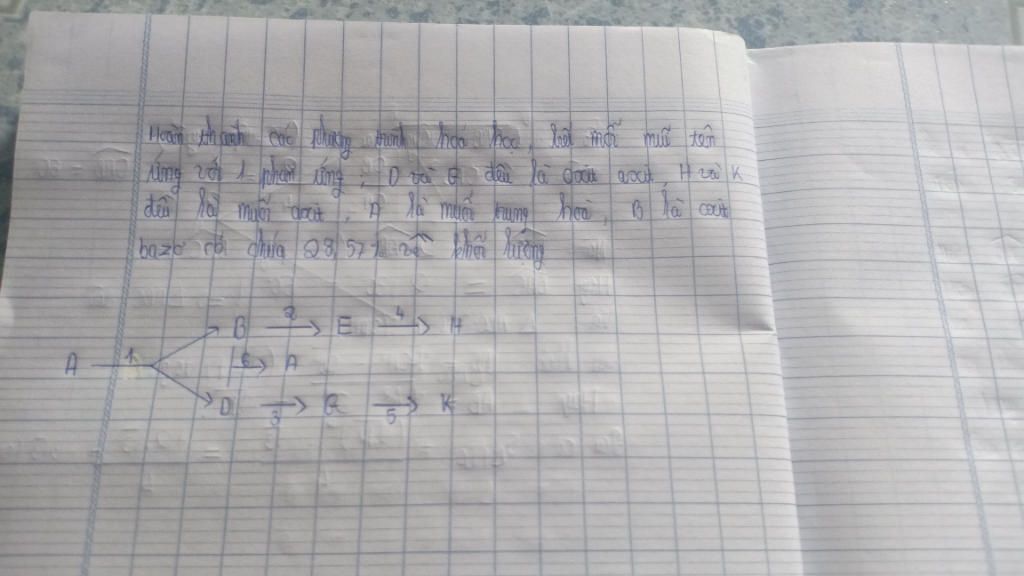 Hoàn thành các phương trình hoá học, biết mỗi mũi tên
ứng với 1 phản ứng, D và G đều là oxit axit, H và K
đều là muối axit, A là muối trung hoà, B là oxit
bazơ có chứa 28,57% về khối lượng
B 2 E 4 H
A 1 6 A
D 3 G 5 K